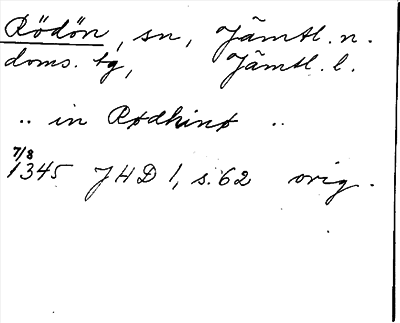 Rödön, sn, Jämtl. n.
doms. tg, Jämtl. l.
.. in Rødhinø ..
7/8
1345 JHD 1, s. 62 orig.